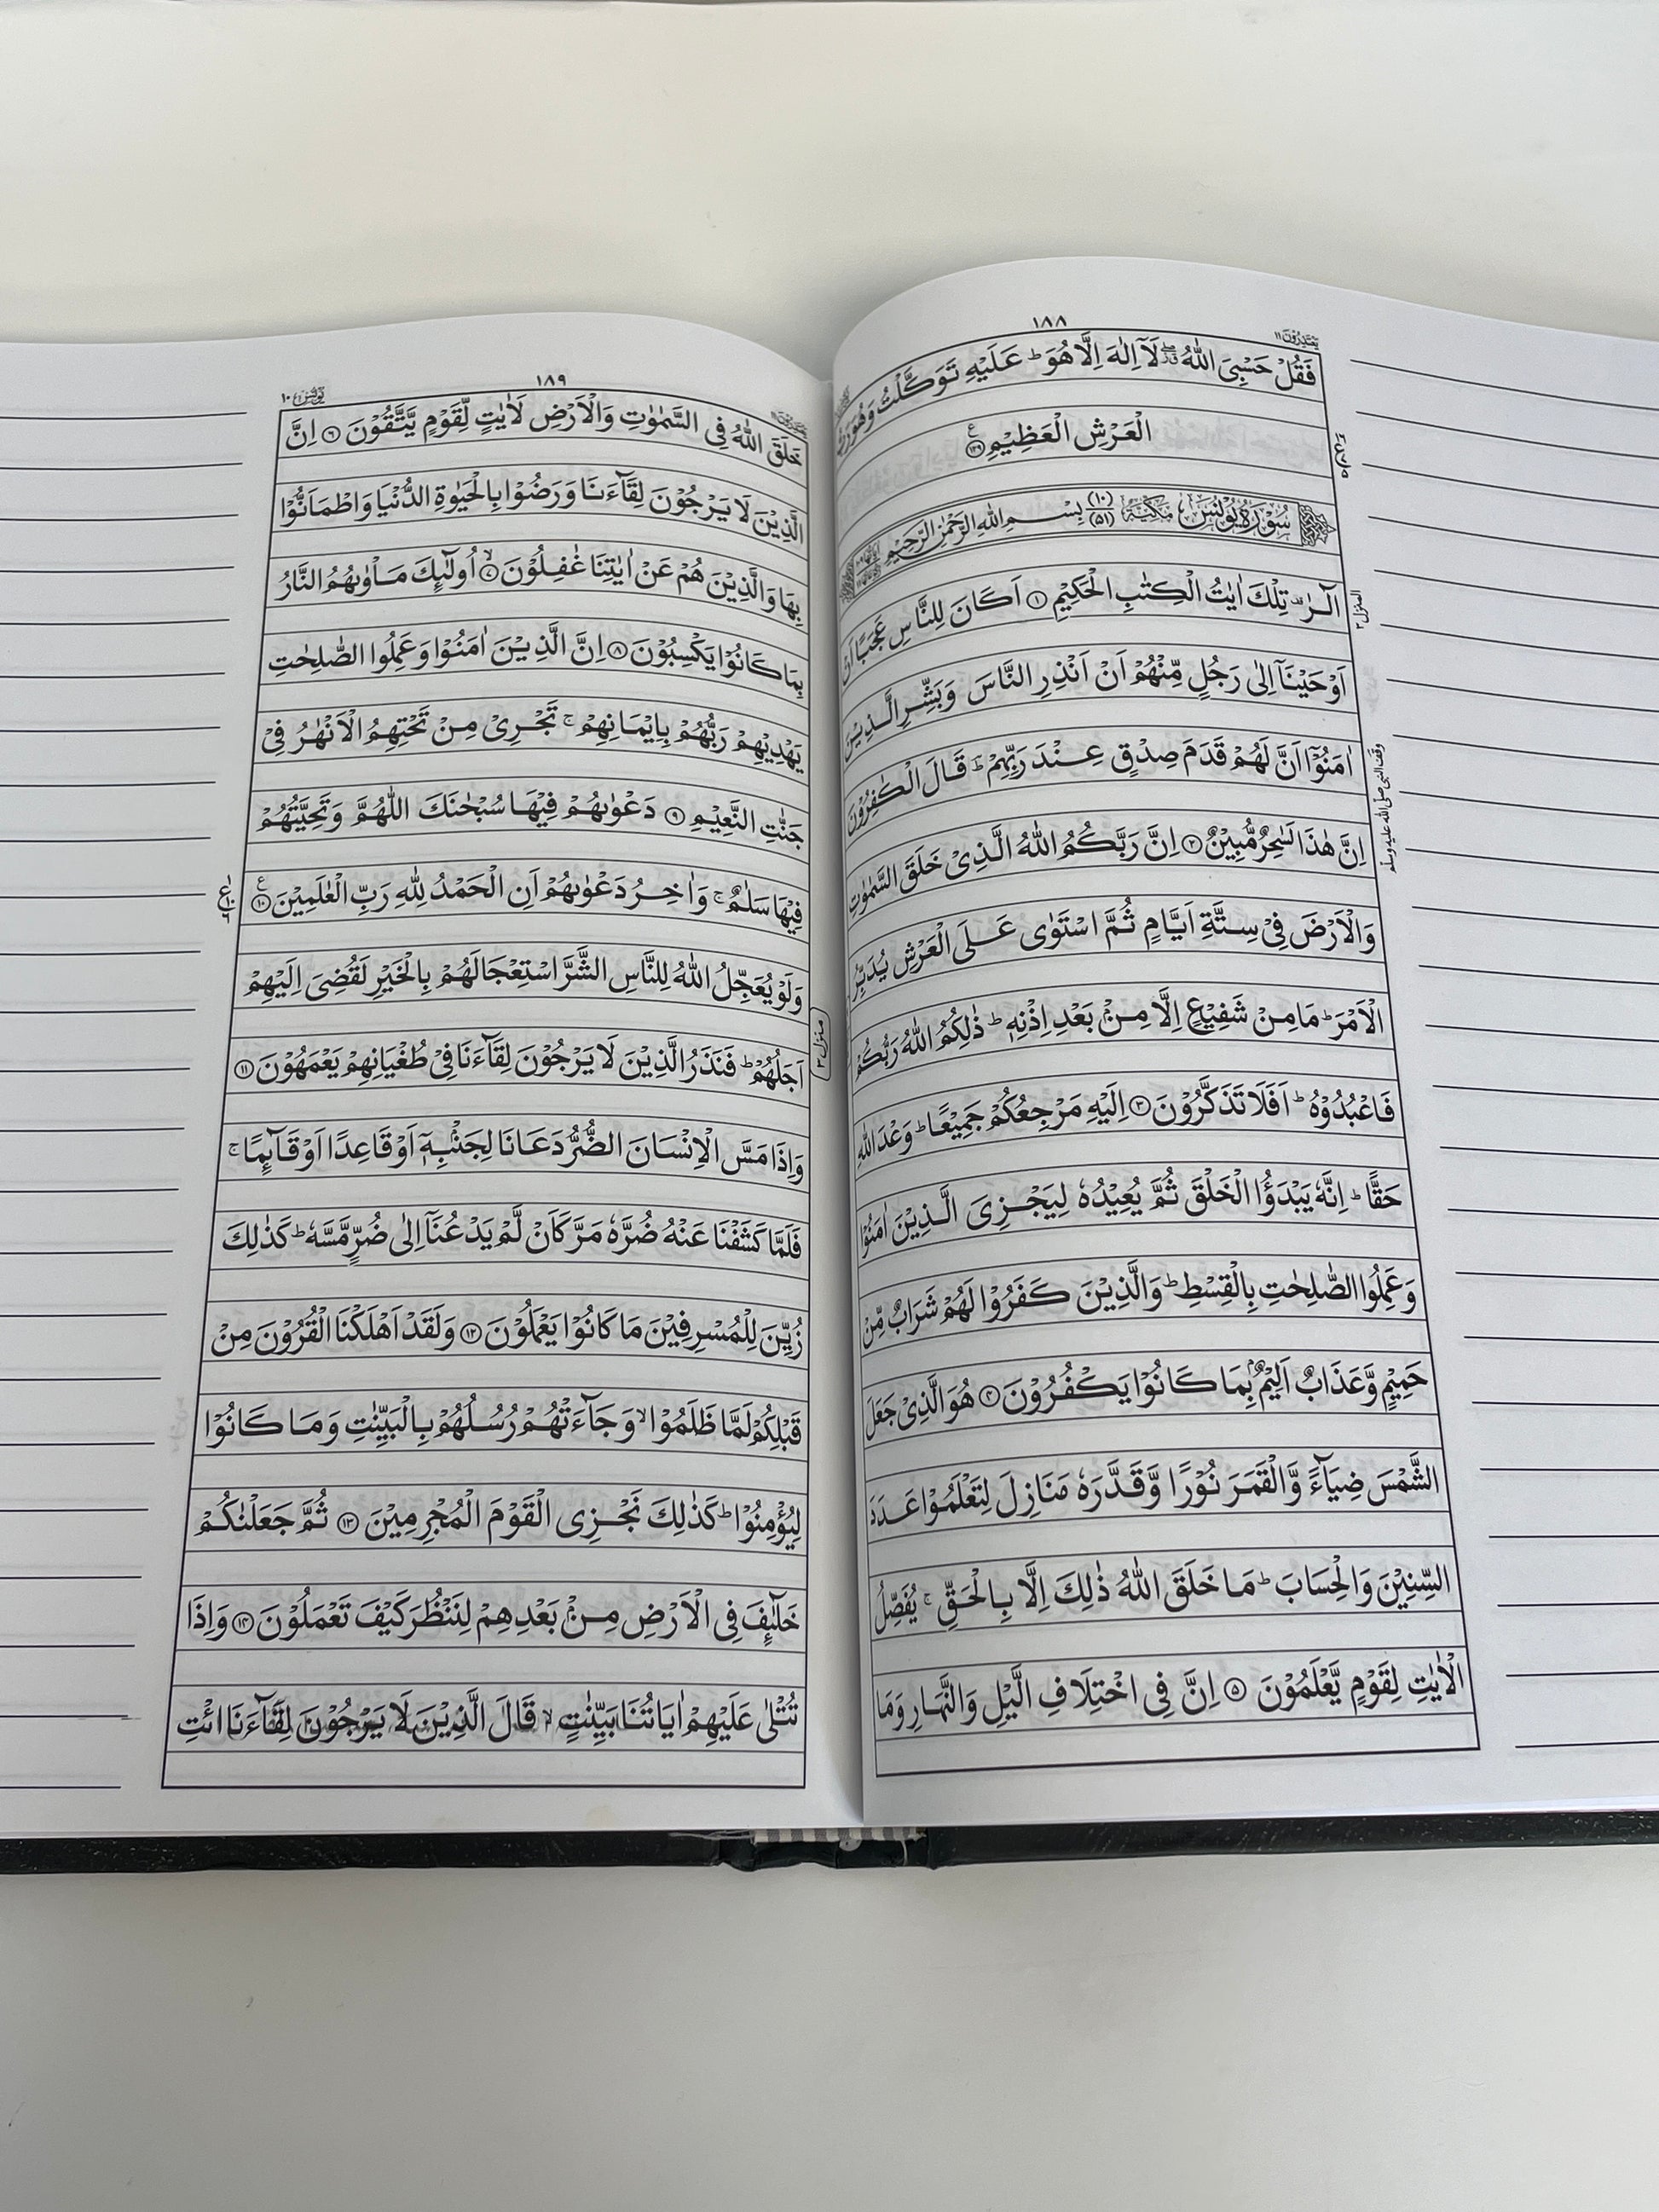 ١٨٨
يَعْتَذِرُوْنَ ١١
فَقُلْ حَسْبِيَ اللّٰهُ ۖ لَاۤ اِلٰهَ اِلَّا هُوَ ؕ عَلَيْهِ تَوَكَّلْتُ وَهُوَ رَبُّ
الْعَرْشِ الْعَظِيْمِ ۝١٢٩
سُوْرَةُ يُوْنُسَ مَكِّيَّةٌ (١٠) (٥١) بِسْمِ اللّٰهِ الرَّحْمٰنِ الرَّحِيْمِ
الٓرٰ ۫ تِلْكَ اٰيٰتُ الْكِتٰبِ الْحَكِيْمِ ۝١ اَكَانَ لِلنَّاسِ عَجَبًا اَنْ
المنزل ٣
اَوْحَيْنَاۤ اِلٰى رَجُلٍ مِّنْهُمْ اَنْ اَنْذِرِ النَّاسَ وَبَشِّرِ الَّذِيْنَ
اٰمَنُوْۤا اَنَّ لَهُمْ قَدَمَ صِدْقٍ عِنْدَ رَبِّهِمْ ؕ قَالَ الْكٰفِرُوْنَ
وقف النبي صلى الله عليه وسلم
اِنَّ هٰذَا لَسٰحِرٌ مُّبِيْنٌ ۝٢ اِنَّ رَبَّكُمُ اللّٰهُ الَّذِيْ خَلَقَ السَّمٰوٰتِ
وَالْاَرْضَ فِيْ سِتَّةِ اَيَّامٍ ثُمَّ اسْتَوٰى عَلَى الْعَرْشِ يُدَبِّرُ
الْاَمْرَ ؕ مَا مِنْ شَفِيْعٍ اِلَّا مِنْۢ بَعْدِ اِذْنِهٖ ؕ ذٰلِكُمُ اللّٰهُ رَبُّكُمْ
فَاعْبُدُوْهُ ؕ اَفَلَا تَذَكَّرُوْنَ ۝٣ اِلَيْهِ مَرْجِعُكُمْ جَمِيْعًا ؕ وَعْدَ اللّٰهِ
حَقًّا ؕ اِنَّهٗ يَبْدَؤُا الْخَلْقَ ثُمَّ يُعِيْدُهٗ لِيَجْزِيَ الَّذِيْنَ اٰمَنُوْا
وَعَمِلُوا الصّٰلِحٰتِ بِالْقِسْطِ ؕ وَالَّذِيْنَ كَفَرُوْا لَهُمْ شَرَابٌ مِّنْ
حَمِيْمٍ وَّعَذَابٌ اَلِيْمٌۢ بِمَا كَانُوْا يَكْفُرُوْنَ ۝٤ هُوَ الَّذِيْ جَعَلَ
الشَّمْسَ ضِيَآءً وَّالْقَمَرَ نُوْرًا وَّقَدَّرَهٗ مَنَازِلَ لِتَعْلَمُوْا عَدَدَ
السِّنِيْنَ وَالْحِسَابَ ؕ مَا خَلَقَ اللّٰهُ ذٰلِكَ اِلَّا بِالْحَقِّ ۚ يُفَصِّلُ
الْاٰيٰتِ لِقَوْمٍ يَّعْلَمُوْنَ ۝٥ اِنَّ فِي اخْتِلَافِ الَّيْلِ وَالنَّهَارِ وَمَا
١٨٩
يُوْنُس ١٠
خَلَقَ اللّٰهُ فِي السَّمٰوٰتِ وَالْاَرْضِ لَاٰيٰتٍ لِّقَوْمٍ يَّتَّقُوْنَ ۝٦ اِنَّ
الَّذِيْنَ لَا يَرْجُوْنَ لِقَآءَنَا وَرَضُوْا بِالْحَيٰوةِ الدُّنْيَا وَاطْمَاَنُّوْا
بِهَا وَالَّذِيْنَ هُمْ عَنْ اٰيٰتِنَا غٰفِلُوْنَ ۝٧ۙ اُولٰٓئِكَ مَاْوٰىهُمُ النَّارُ
بِمَا كَانُوْا يَكْسِبُوْنَ ۝٨ اِنَّ الَّذِيْنَ اٰمَنُوْا وَعَمِلُوا الصّٰلِحٰتِ
يَهْدِيْهِمْ رَبُّهُمْ بِاِيْمَانِهِمْ ۚ تَجْرِيْ مِنْ تَحْتِهِمُ الْاَنْهٰرُ فِيْ
جَنّٰتِ النَّعِيْمِ ۝٩ دَعْوٰىهُمْ فِيْهَا سُبْحٰنَكَ اللّٰهُمَّ وَتَحِيَّتُهُمْ
فِيْهَا سَلٰمٌ ۚ وَاٰخِرُ دَعْوٰىهُمْ اَنِ الْحَمْدُ لِلّٰهِ رَبِّ الْعٰلَمِيْنَ ۝١٠
وَلَوْ يُعَجِّلُ اللّٰهُ لِلنَّاسِ الشَّرَّ اسْتِعْجَالَهُمْ بِالْخَيْرِ لَقُضِيَ اِلَيْهِمْ
منزل ٣
اَجَلُهُمْ ؕ فَنَذَرُ الَّذِيْنَ لَا يَرْجُوْنَ لِقَآءَنَا فِيْ طُغْيَانِهِمْ يَعْمَهُوْنَ ۝١١
وَاِذَا مَسَّ الْاِنْسَانَ الضُّرُّ دَعَانَا لِجَنْۢبِهٖۤ اَوْ قَاعِدًا اَوْ قَآئِمًا ۚ
فَلَمَّا كَشَفْنَا عَنْهُ ضُرَّهٗ مَرَّ كَاَنْ لَّمْ يَدْعُنَاۤ اِلٰى ضُرٍّ مَّسَّهٗ ؕ كَذٰلِكَ
زُيِّنَ لِلْمُسْرِفِيْنَ مَا كَانُوْا يَعْمَلُوْنَ ۝١٢ وَلَقَدْ اَهْلَكْنَا الْقُرُوْنَ مِنْ
قَبْلِكُمْ لَمَّا ظَلَمُوْا ۙ وَجَآءَتْهُمْ رُسُلُهُمْ بِالْبَيِّنٰتِ وَمَا كَانُوْا
لِيُؤْمِنُوْا ؕ كَذٰلِكَ نَجْزِي الْقَوْمَ الْمُجْرِمِيْنَ ۝١٣ ثُمَّ جَعَلْنٰكُمْ
خَلٰٓئِفَ فِي الْاَرْضِ مِنْۢ بَعْدِهِمْ لِنَنْظُرَ كَيْفَ تَعْمَلُوْنَ ۝١٤ وَاِذَا
تُتْلٰى عَلَيْهِمْ اٰيَاتُنَا بَيِّنٰتٍ ۙ قَالَ الَّذِيْنَ لَا يَرْجُوْنَ لِقَآءَنَا ائْتِ